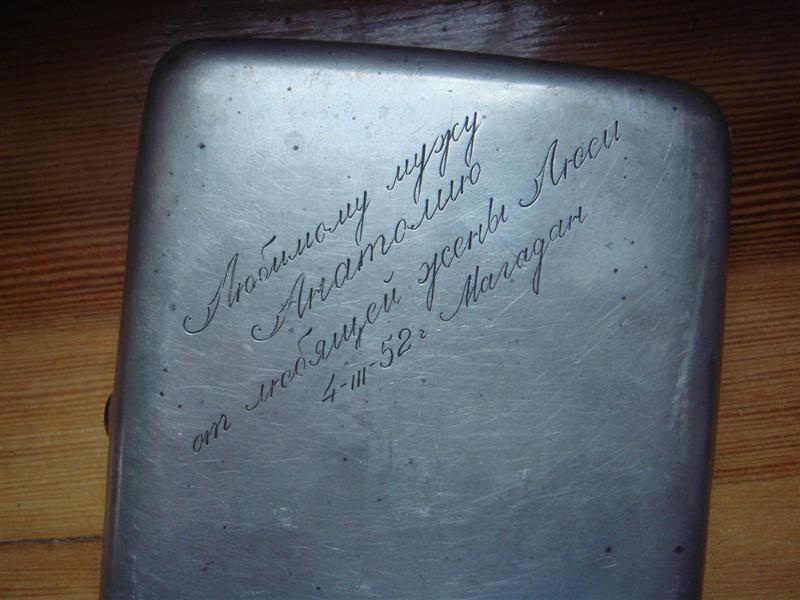 Любимому мужу
Анатолию
от любящей жены Люси
4-III-52г Магадан